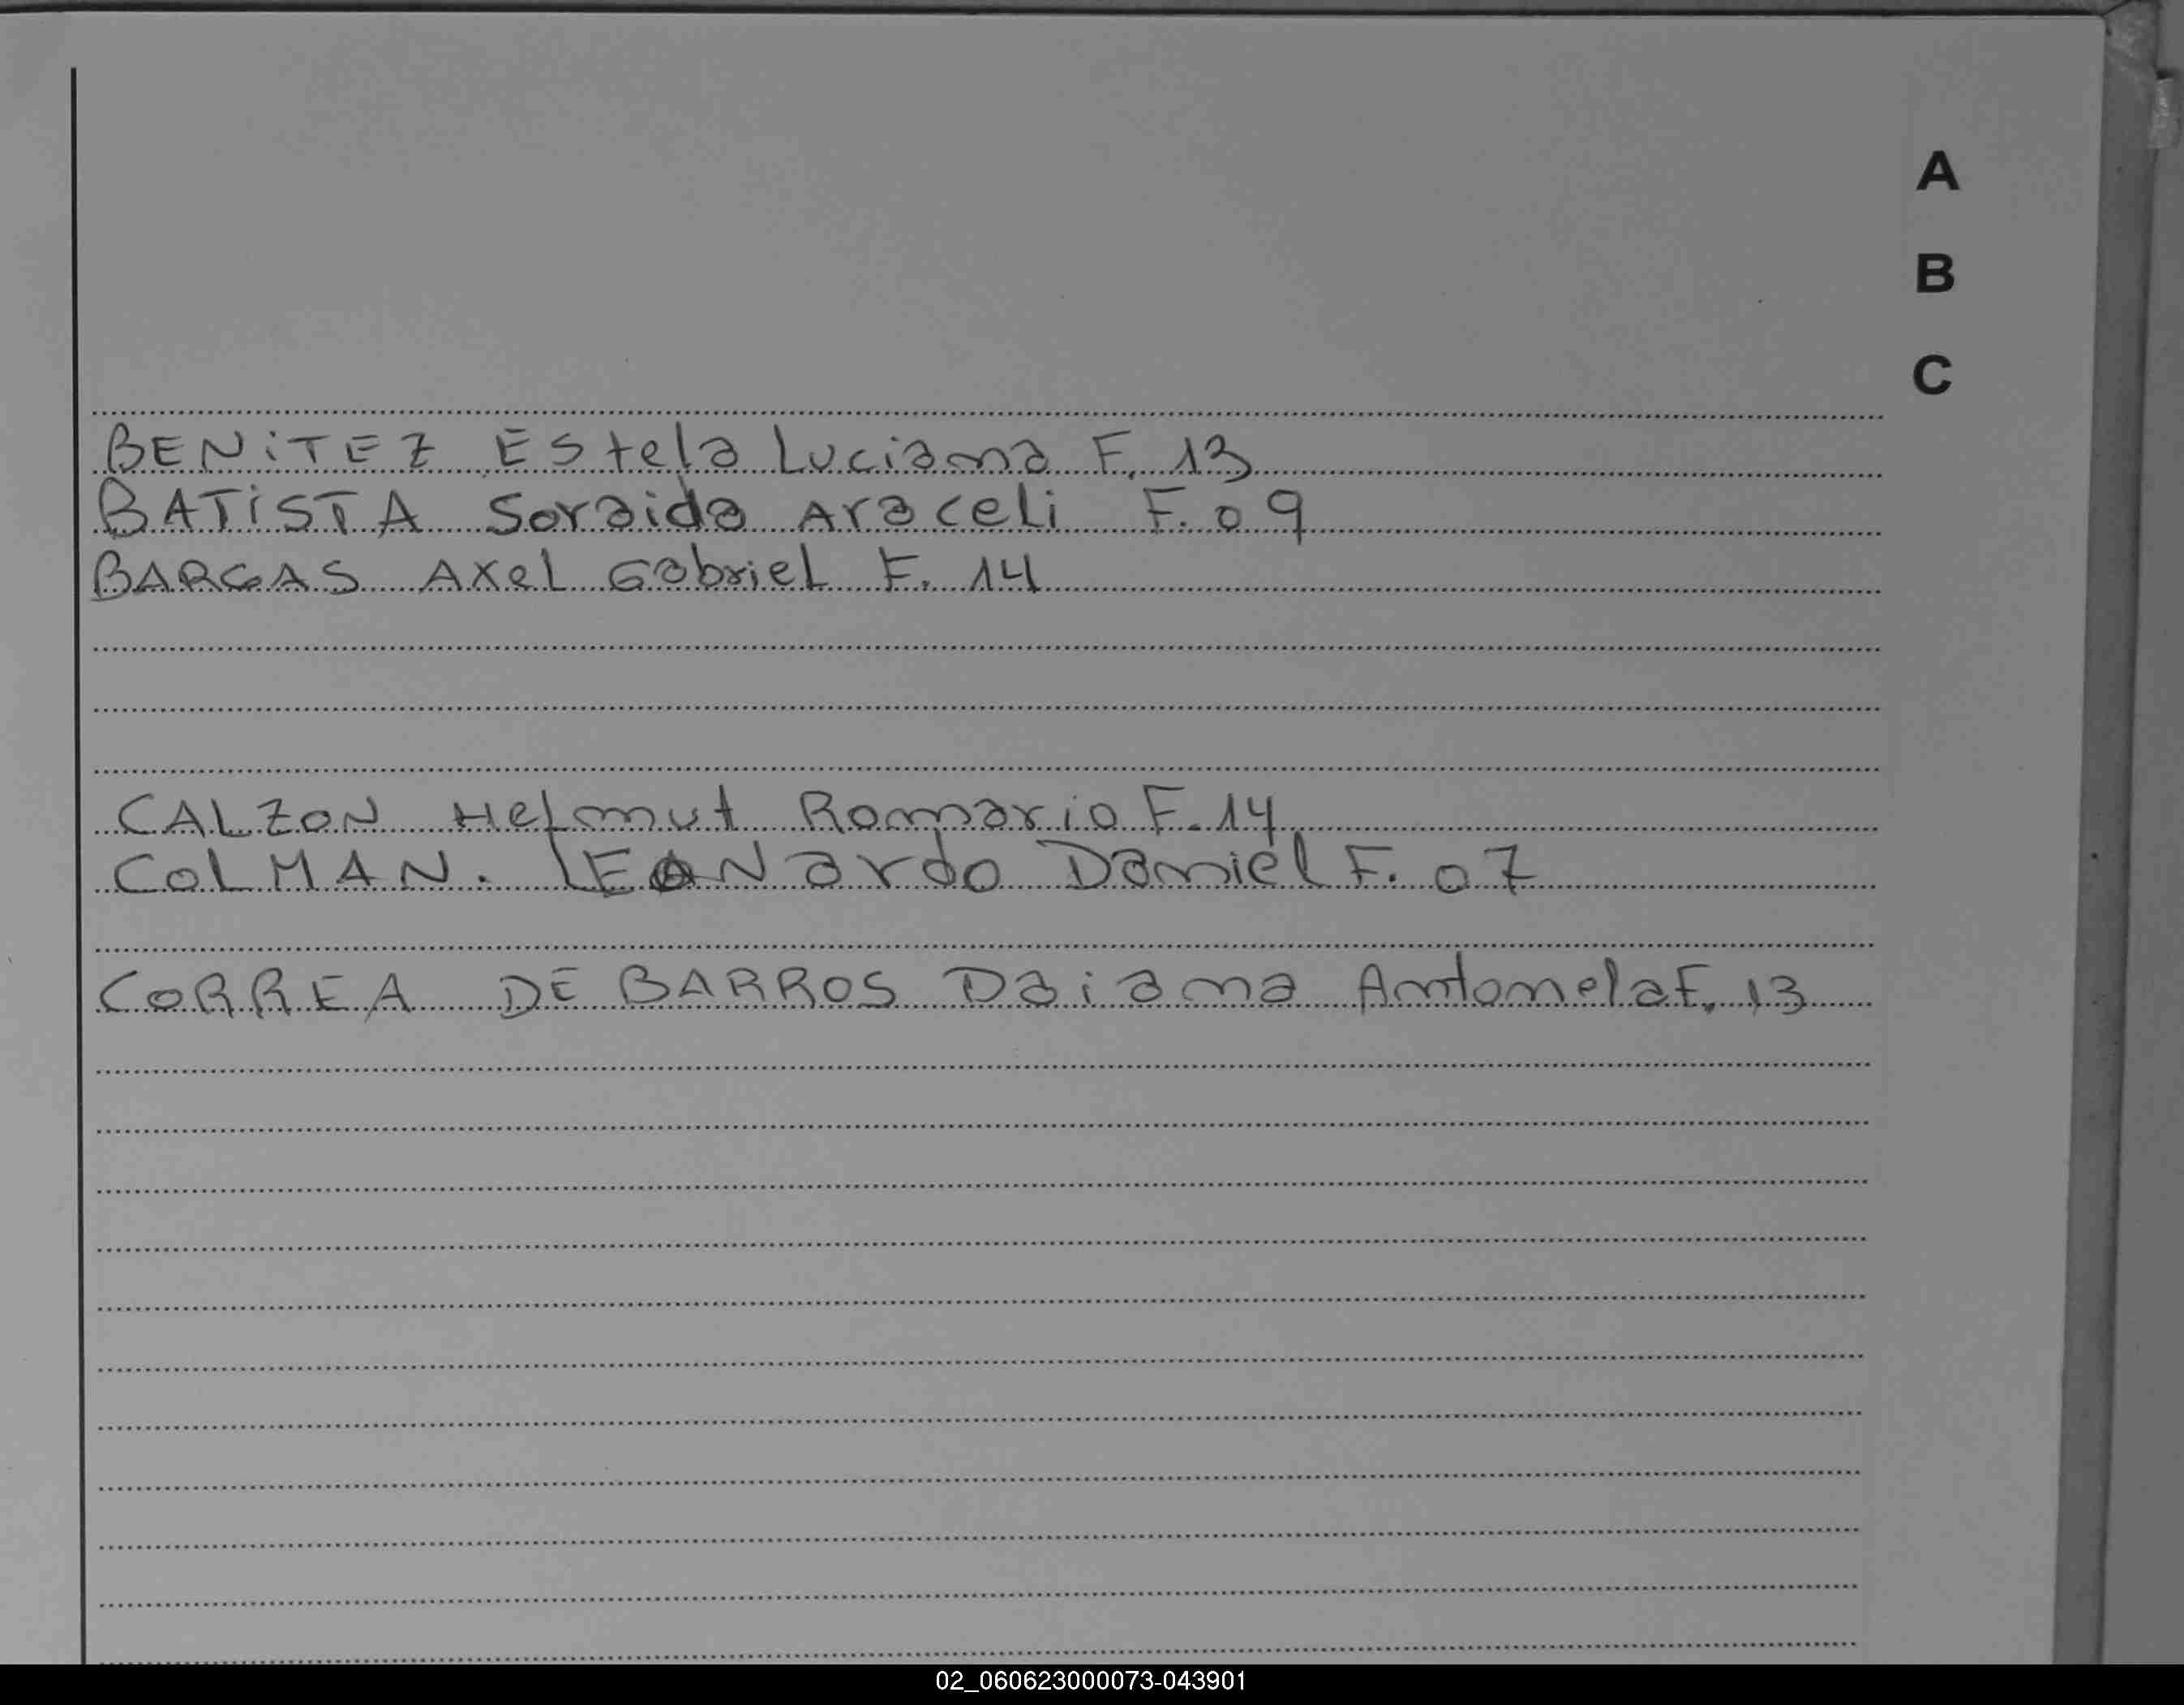 A
B
C
BENiTEZ Estela Luciana F. 13
BATiSTA Soraida Araceli F. 09
BARGAS Axel Gabriel F. 14
CALZON Helmut Romario F. 14
COLMAN. LEONardo Daniel F. 07
CORREA DE BARROS Daiana Antonela F. 13
02_060623000073-043901